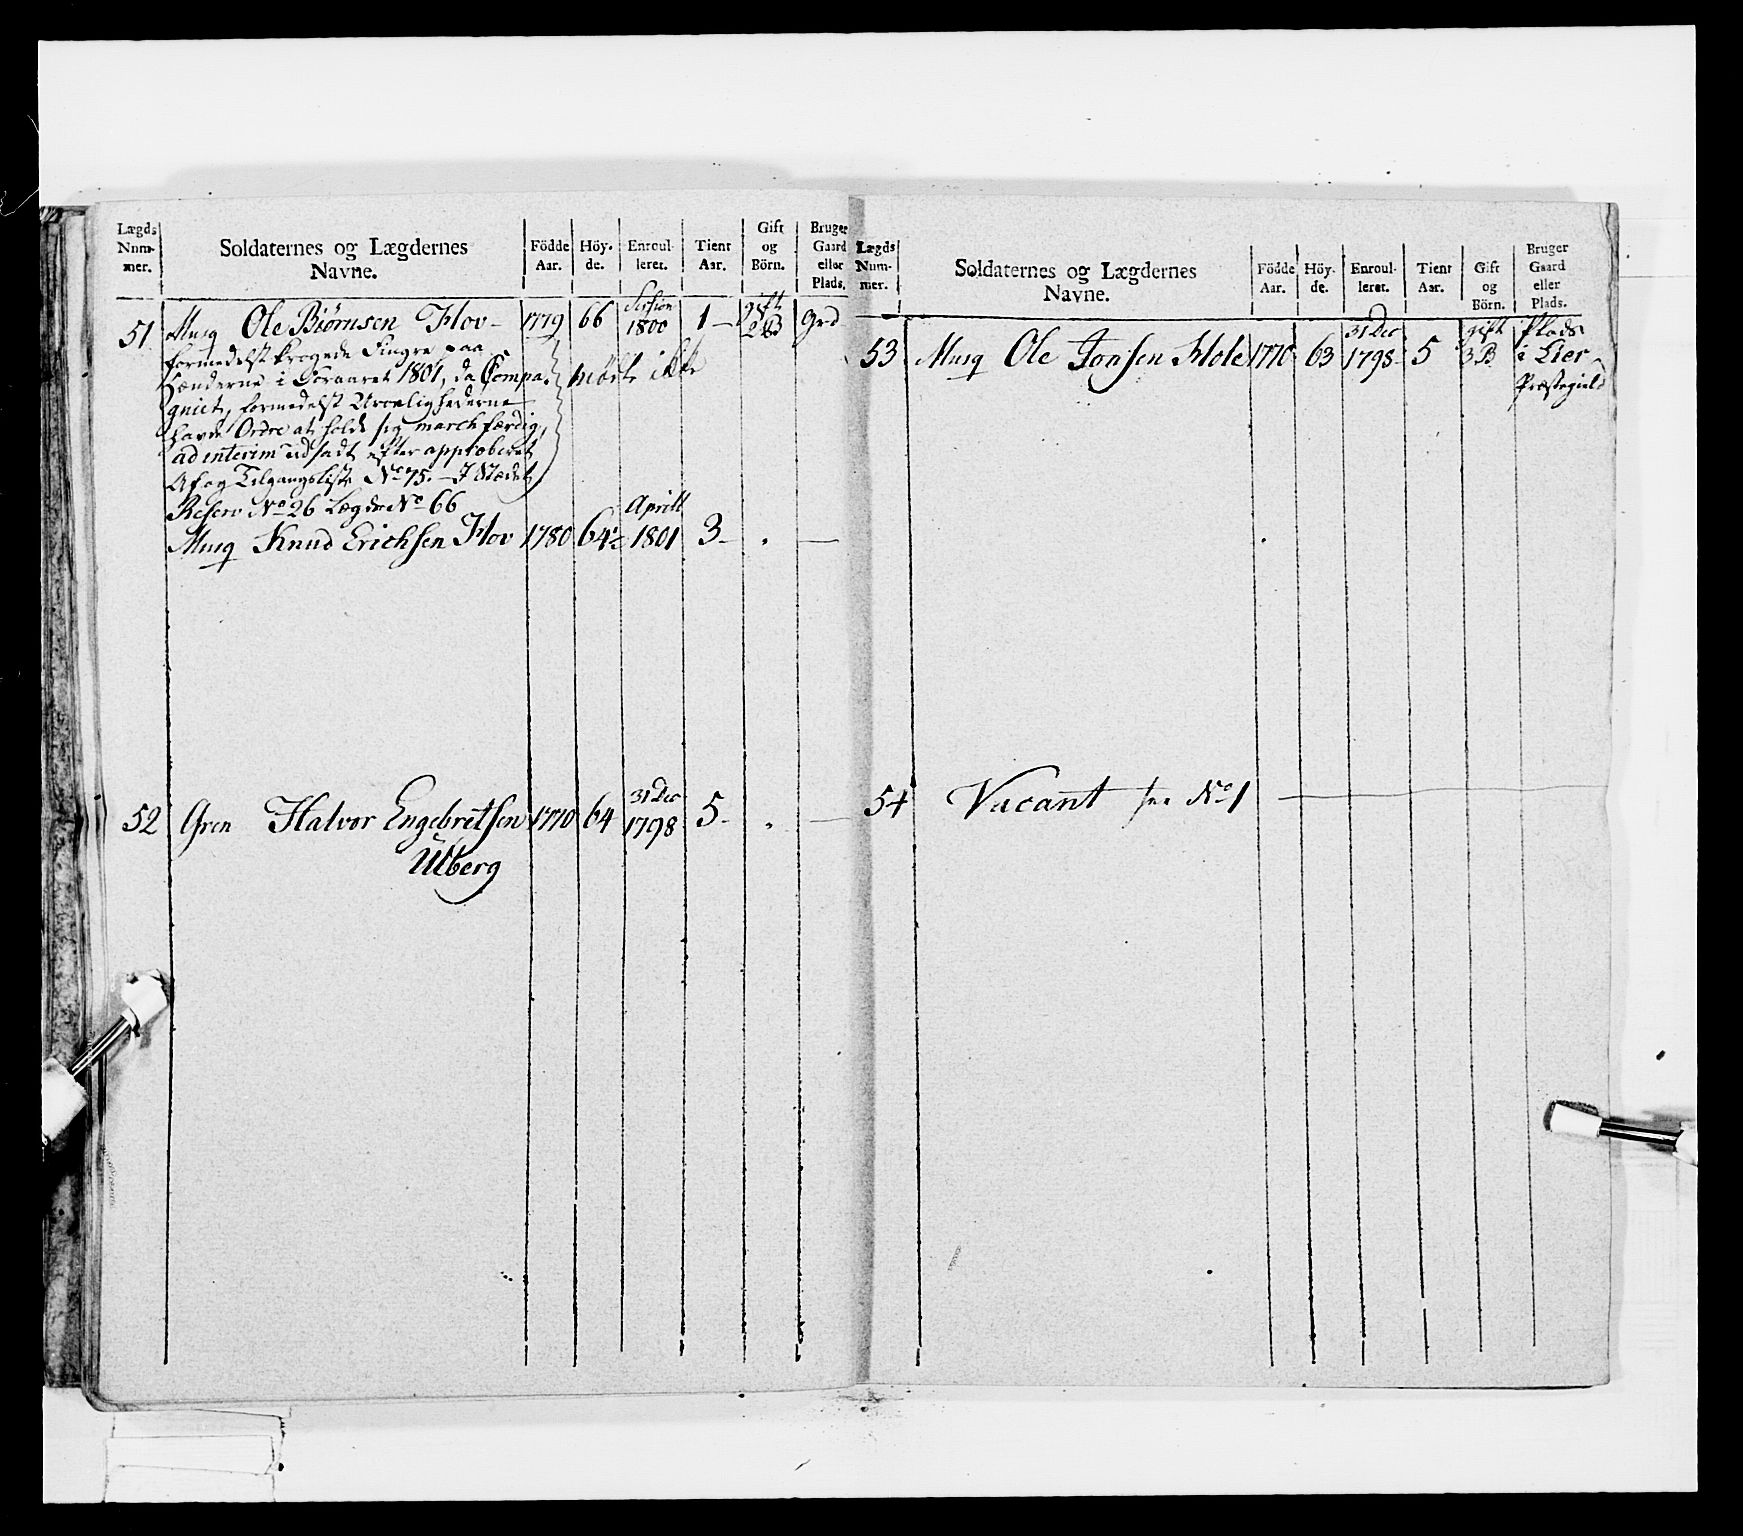 Lægds Num- mer. | Soldaternes og Lægdernes Navne. | Födde Aar. | Höy- de. | Enroul- leret. | Tient Aar. | Gift og Börn. | Bruger Gaard eller Plads.
51 Musq Ole Biørnsen Hov - 1779 66 Session 1800 1 - gift 2 B Grd
formedelst krogede Fingre paa
Hænderne i Foraaret 1801, da Compa- mödte ikke
gniet, formedelst Uroelighederne
havde Ordre at holde sig marchfærdig,
ad interim udsadt efter approberet
Af og Tilgangsliste No 75. - I Stædet
Reserv No 26 Lægds No 66
Musq Knud Erichsen Hov 1780 64½ Aprill 1801 3 - . —
52 Gren Halvor Engebretsen 1770 64 31 Dec 1798 5 - . —
Ulberg
Lægds Num- mer. | Soldaternes og Lægdernes Navne. | Födde Aar. | Höy- de. | Enroul- leret. | Tient Aar. | Gift og Börn. | Bruger Gaard eller Plads.
53 Musq Ole Jonsen Hole 1770 63 31 Dec 1798 5 gift 3 B Plads
i Lier
Præstegield
54 Vacant see No 1 —